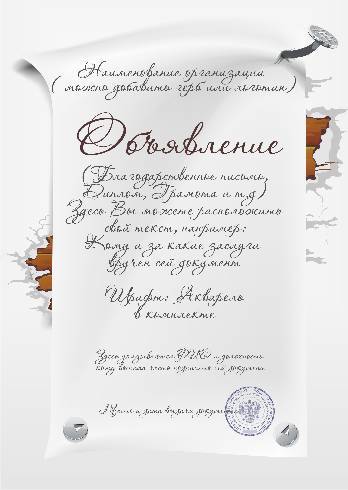 Наименование организации
( можно добавить герб или логотип)
Объявление
(Благодарственные письмы,
Диплом, Грамота и т.д)
Здесь Вы можете расположить
свой текст, например:
Кому и за какие заслуги
вручен сей документ
Шрифт: Акварель
в комплекте
Здесь указываются ФИО и должность